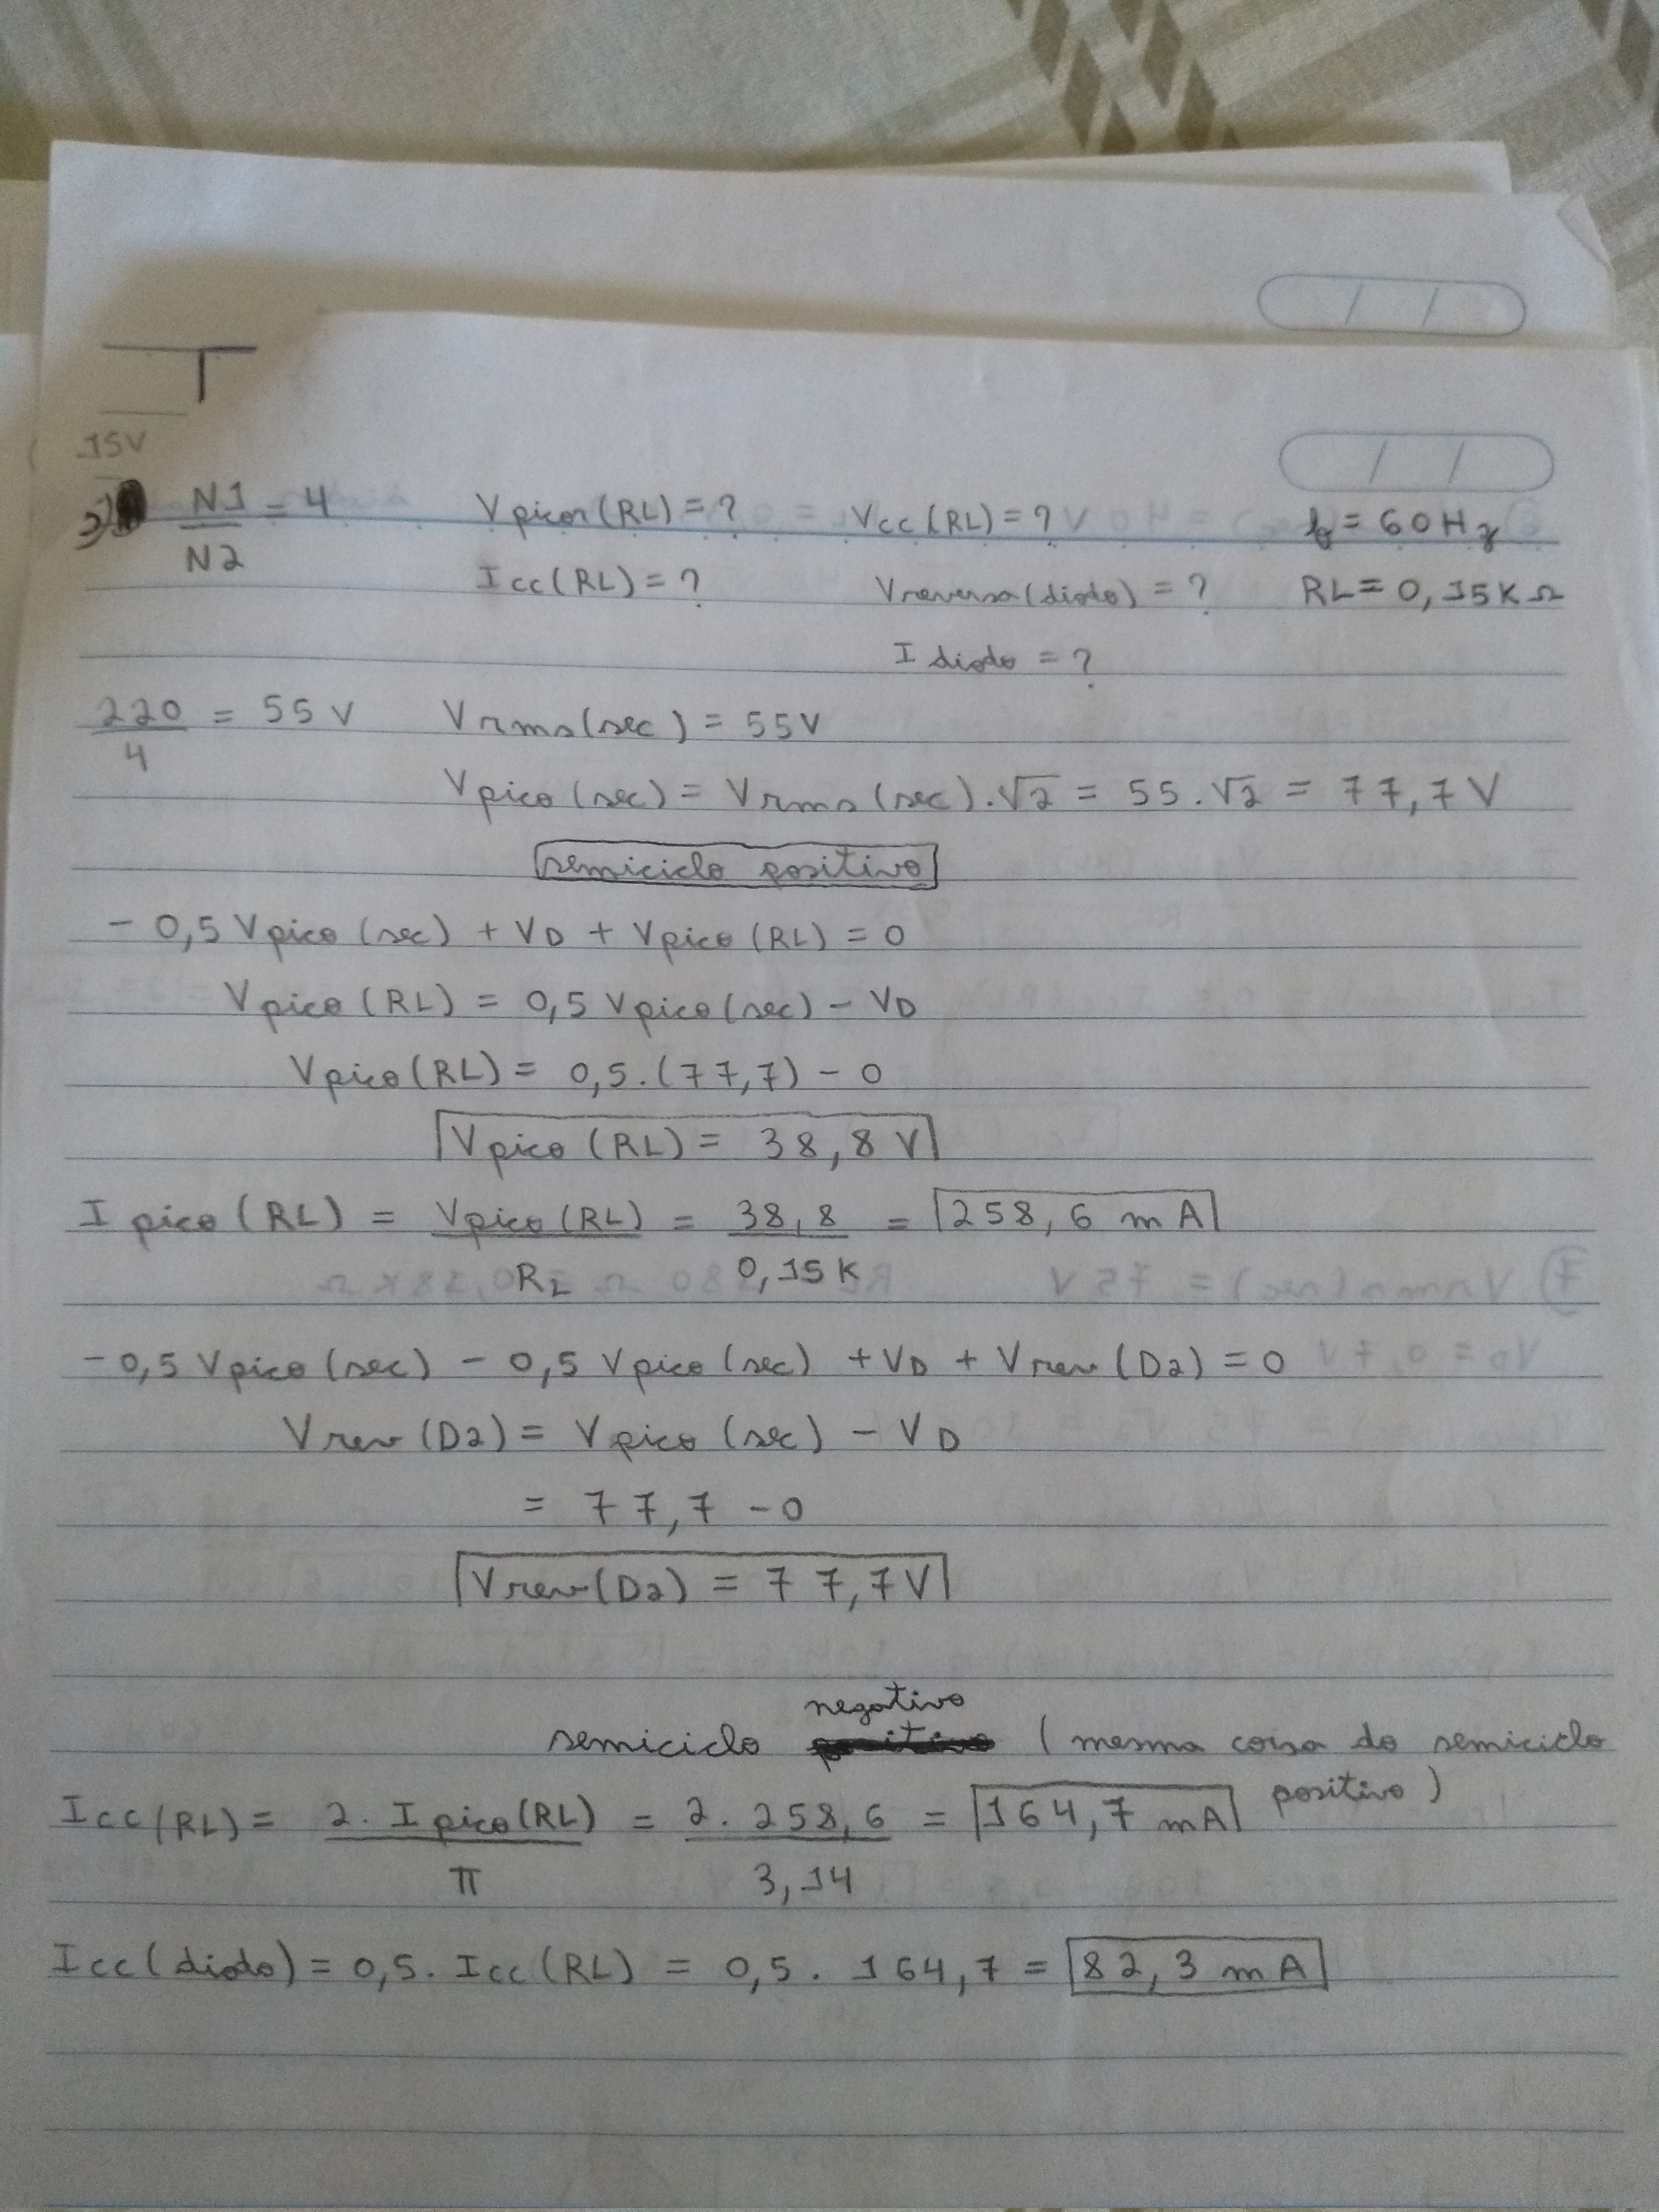 15V
2) N1/N2 = 4 Vpico(RL) = ? Vcc(RL) = ? f = 60Hz
Icc(RL) = ? Vreversa(diodo) = ? RL = 0,15KΩ
I diodo = ?
220/4 = 55 V Vrms(sec) = 55V
Vpico(sec) = Vrms(sec).√2 = 55.√2 = 77,7V
semiciclo positivo
- 0,5 Vpico(sec) + VD + Vpico(RL) = 0
Vpico(RL) = 0,5 Vpico(sec) - VD
Vpico(RL) = 0,5.(77,7) - 0
Vpico(RL) = 38,8 V
I pico(RL) = Vpico(RL)/RL = 38,8/0,15K = 258,6 mA
-0,5 Vpico(sec) - 0,5 Vpico(sec) + VD + Vrev(D2) = 0
Vrev(D2) = Vpico(sec) - VD
= 77,7 - 0
Vrev(D2) = 77,7V
semiciclo negativo (mesma coisa do semiciclo positivo)
Icc(RL) = 2. I pico(RL)/π = 2. 258,6/3,14 = 164,7 mA
Icc(diodo) = 0,5. Icc(RL) = 0,5. 164,7 = 82,3 mA